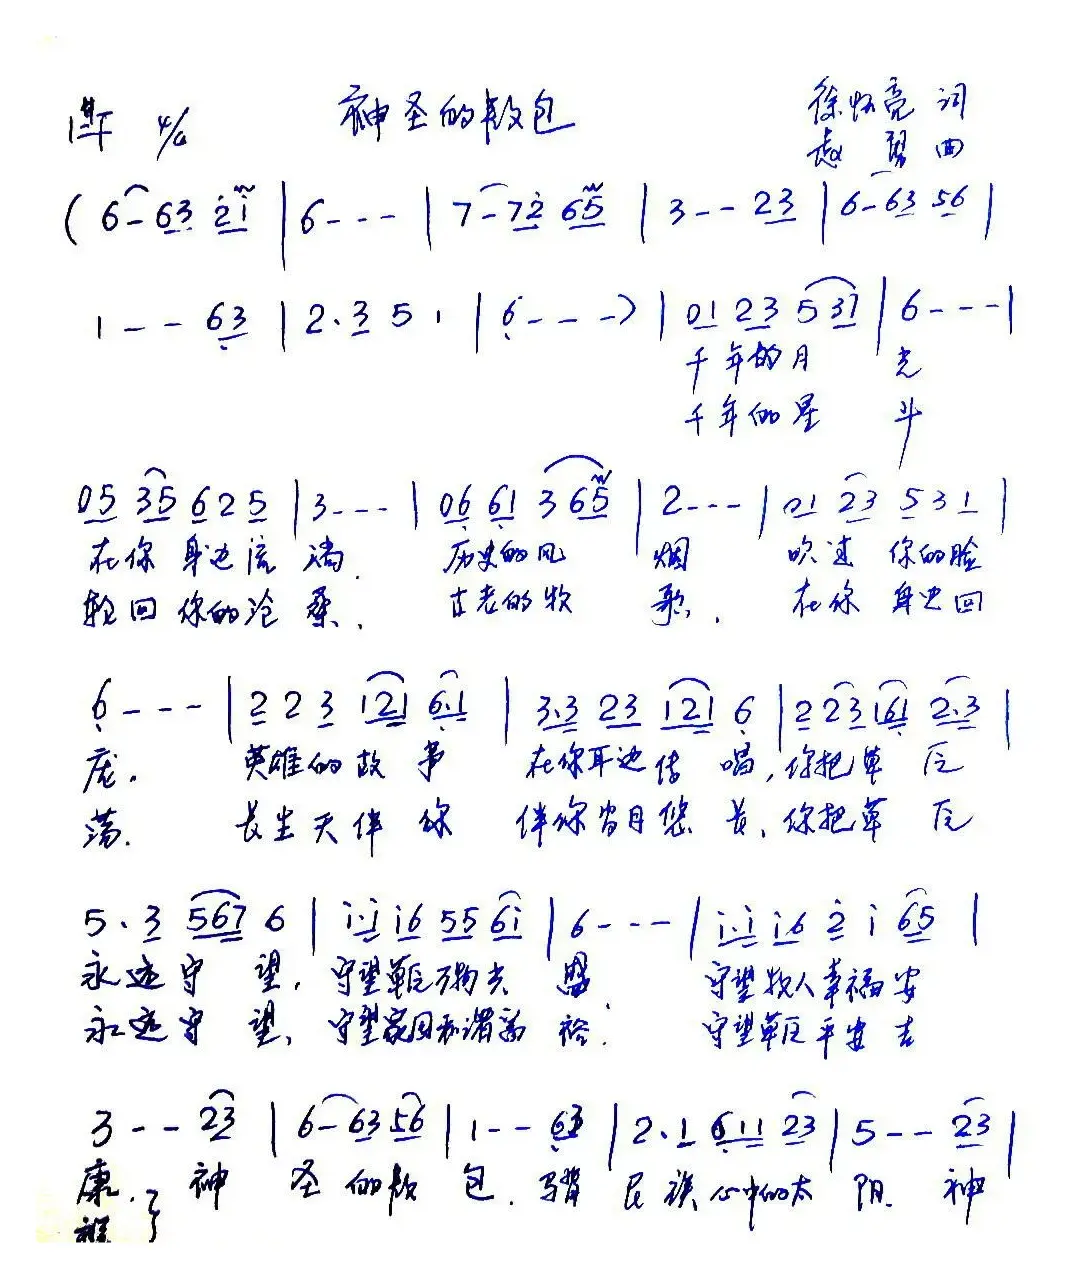 1=F 4/4 神圣的敖包 徐怀亮 词
曲
( 6 - 63 2i | 6 - - - | 7 - 72 65 | 3 - - 23 | 6 - 63 56 |
1 - - 63 | 2. 3 5 1 | 6 - - - ) | 01 23 5 31 | 6 - - - |
千年的月 光
千年的星 斗
05 35 6 2 5 | 3 - - - | 06 61 3 65 | 2 - - - | 01 23 5 3 1 |
在你 身边流 淌. 历史的风 烟 吹过 你的脸
轮回 你的沧 桑. 古老的牧 歌. 在你 身边回
6 - - - | 2 2 3 121 6.1 | 3.3 23 121 6 | 2 23 161 2.3 |
庞. 英雄的故 事 在你耳边传 唱,你把草 原
荡. 长生天伴 你 伴你岁月悠 长,你把草 原
5. 3 567 6 | i.i i6 55 6i | 6 - - - | i.i i6 2 i 65 |
永远守 望, 守望草原万物 守望牧人幸福安
永远守 望, 守望家园和谐 裕. 守望草原平安吉
3 - - 23 | 6 - 63 56 | 1 - - 63 | 2. 1 611 23 | 5 - - 23 |
康. 神 圣 的敖 包. 民 族 心中的太 阳. 神
祥